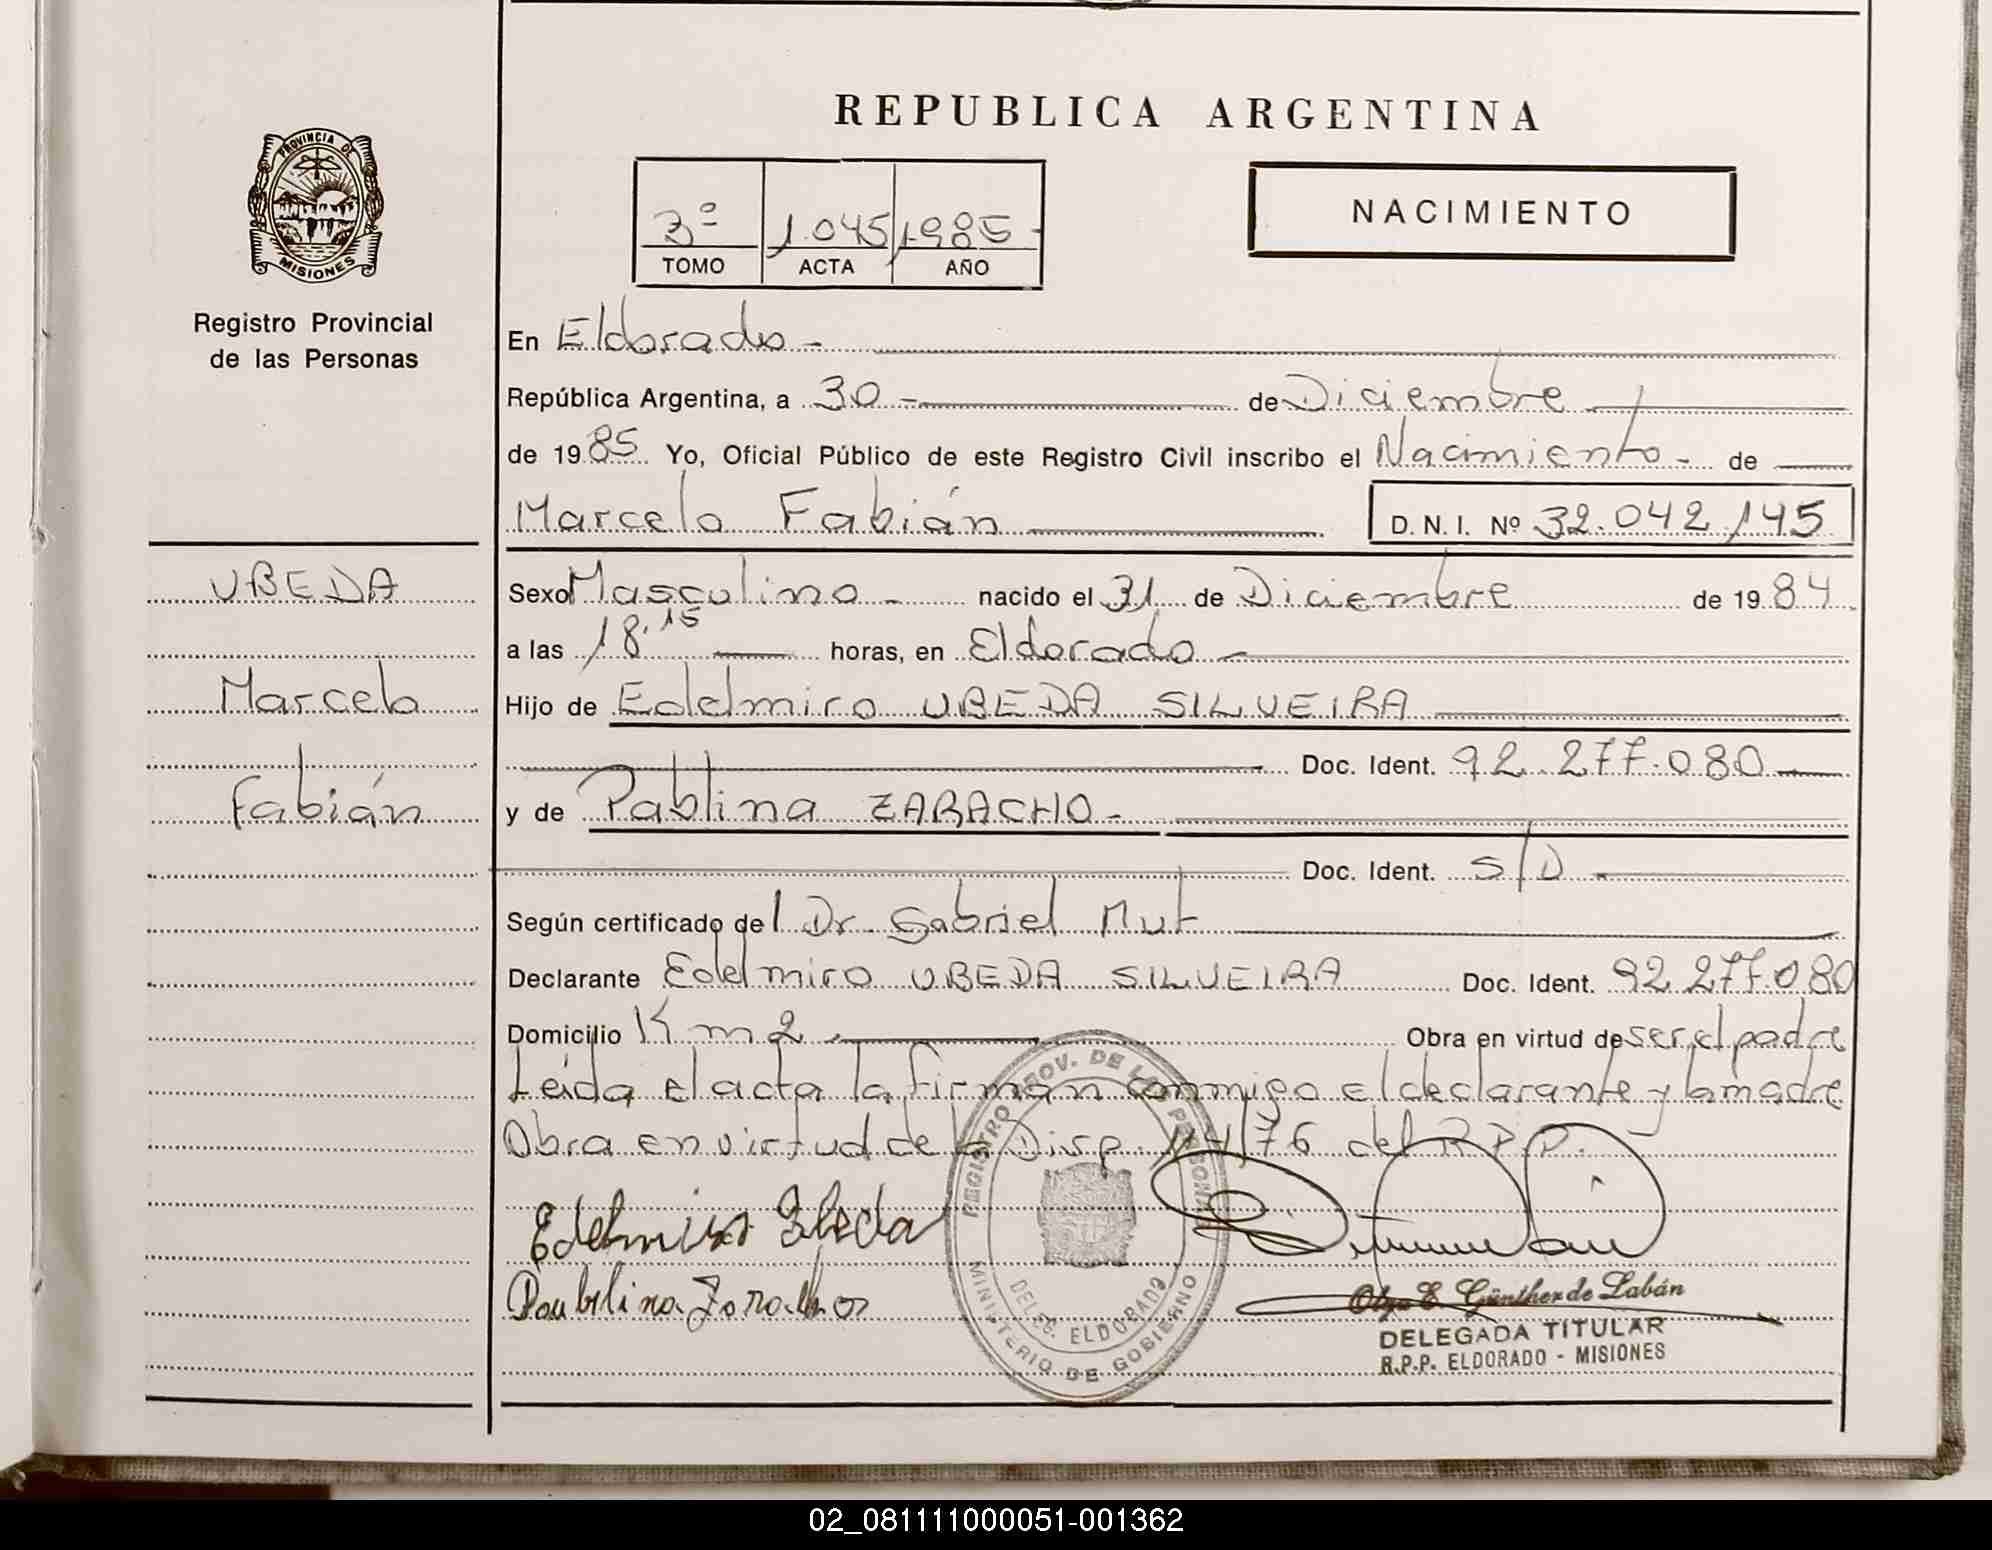 REPUBLICA ARGENTINA
PROVINCIA DE
MISIONES
Registro Provincial
de las Personas
3º 1.045 1985-
TOMO ACTA AÑO
NACIMIENTO
En Eldorado -
República Argentina, a 30 - de Diciembre
de 1985 Yo, Oficial Público de este Registro Civil inscribo el Nacimiento - de
Marcelo Fabián D. N. I. Nº 32.042.145
UBEDA
Marcelo
Fabián
Sexo Masculino - nacido el 31 de Diciembre de 1984
a las 18.15 horas, en Eldorado -
Hijo de Edelmiro UBEDA SILVEIRA
Doc. Ident. 92.277.080
y de Pablina ZARACHO -
Doc. Ident. S/D -
Según certificado del Dr. Gabriel Mut
Declarante Edelmiro UBEDA SILVEIRA Doc. Ident. 92.277.080
Domicilio Km 2 Obra en virtud de ser el padre
Leída el acta la firman conmigo el declarante y la madre
Obra en virtud de la Disp. 114/76 del R.P.P.
Edelmiro Ubeda
Paublina Zaracho
REGISTRO PROV. DE LAS PERSONAS
DELEG. ELDORADO
MINISTERIO DE GOBIERNO
Olga E. Günther de Labán
DELEGADA TITULAR
R.P.P. ELDORADO - MISIONES
02_081111000051-001362